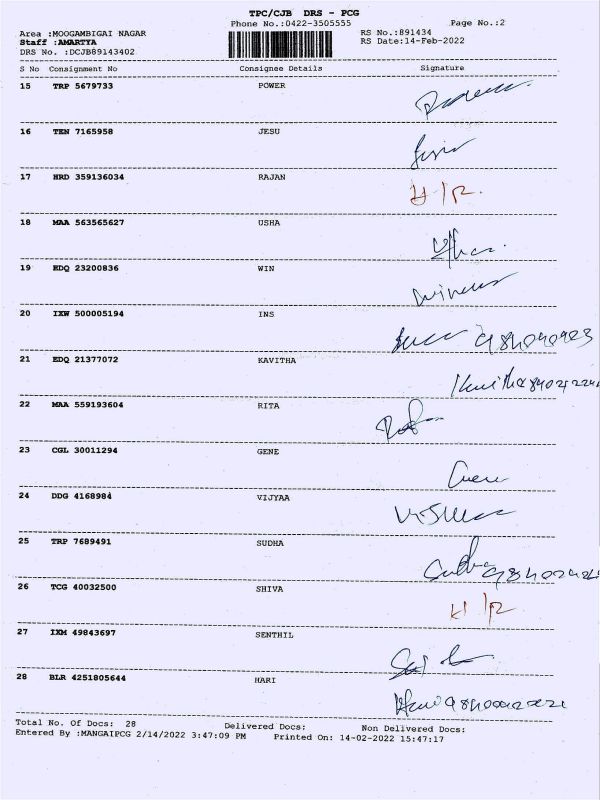 TPC/CJB DRS - PCG
Phone No.:0422-3505555 Page No.:2
Area :MOOGAMBIGAI NAGAR RS No.:891434
Staff :AMARTYA RS Date:14-Feb-2022
DRS No. :DCJB89143402
S No Consignment No Consignee Details Signature
15 TRP 5679733 POWER
16 TEN 7165958 JESU
17 HRD 359136034 RAJAN H/R.
18 MAA 563565627 USHA
19 EDQ 23200836 WIN
20 IXW 500005194 INS
21 EDQ 21377072 KAVITHA
22 MAA 559193604 RITA
23 CGL 30011294 GENE
24 DDG 4168984 VIJYAA
25 TRP 7689491 SUDHA
26 TCG 40032500 SHIVA H/R
27 IXM 49843697 SENTHIL
28 BLR 4251805644 HARI
Total No. Of Docs: 28 Delivered Docs: Non Delivered Docs:
Entered By :MANGAIPCG 2/14/2022 3:47:09 PM Printed On: 14-02-2022 15:47:17